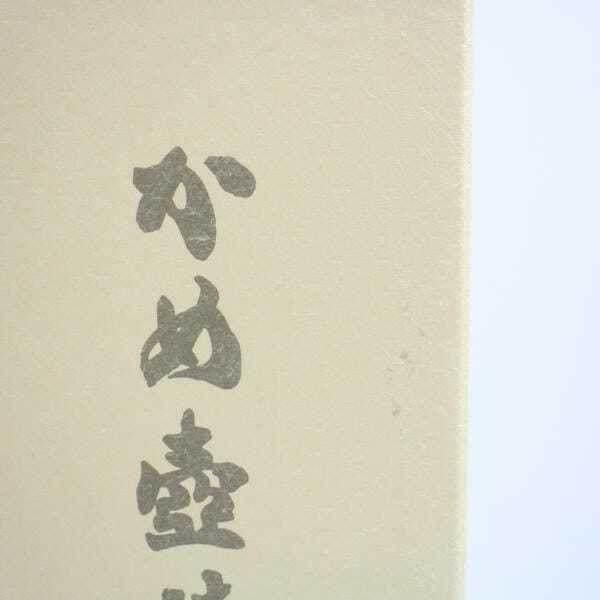 かめ壺